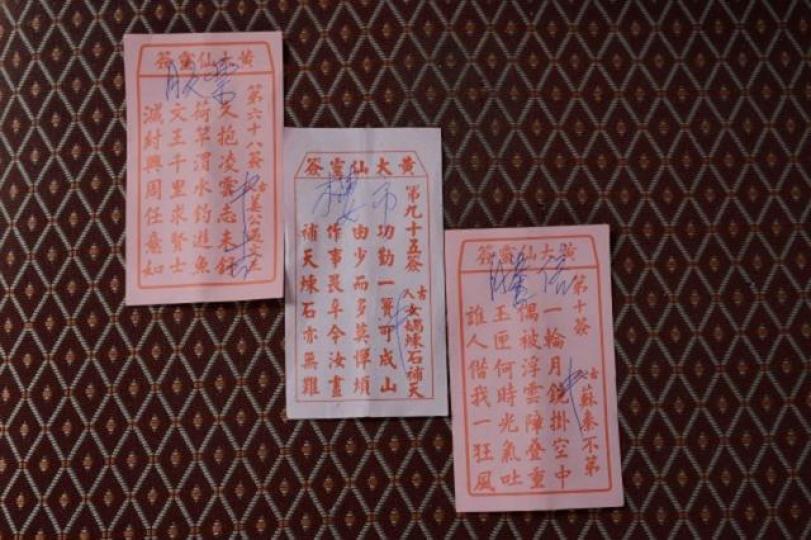 黃大仙靈簽
第六十八簽
古姜公遇文王
久抱凌雲志未舒
荷竿渭水釣遊魚
文王千里求賢士
滅紂興周任意如
黃大仙靈簽
第九十五簽
古人女媧煉石補天
功勤一簣可成山
由少而多莫憚煩
作事畏阜今汝畫
補天煉石亦無難
黃大仙靈簽
第十簽
古蘇秦不第
一輪月鏡掛空中
偶被浮雲障叠重
玉匣何時光氣吐
誰人偕我一狂風